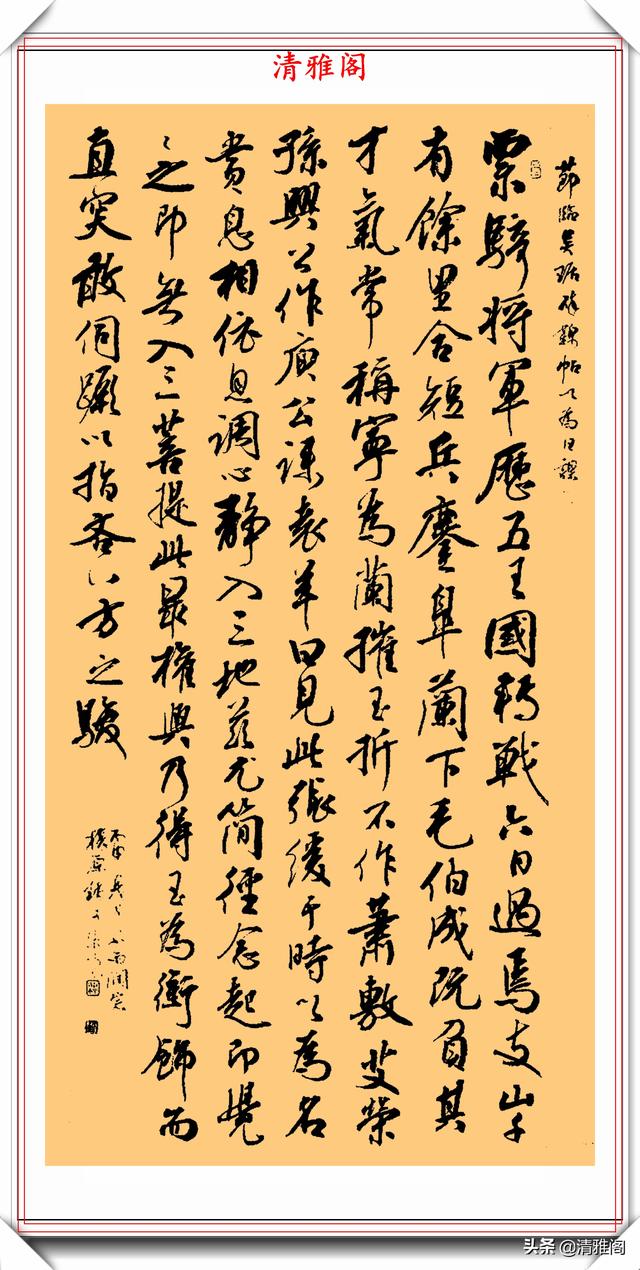 清雅阁
節臨吳琚帖以為日課
票騎將軍歷五王國轉戰六日過焉支山千
有餘里合短兵鏖皐蘭下毛伯成既負其
才氣常稱寧為蘭摧玉折不作蕭敷艾榮
孫興公作庾公誄袁羊曰見此張緩于時以為名
賞息相依息調心靜入三地茲尤簡徑念起即覺
〻之即無入三菩提此最權輿乃得玉為銜飾而
直突敢伺蹶以指吝方之駿
头条 @清雅阁